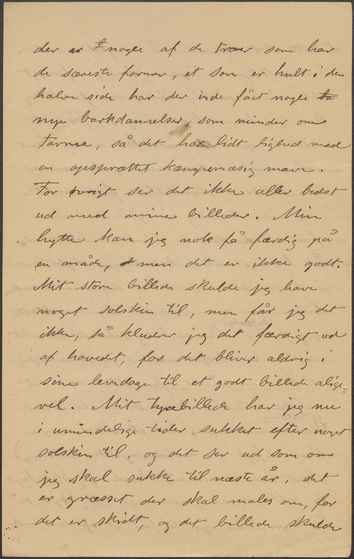 der er nogle af de træer som har
de særeste former, et som er hult i den
halve side har der inde fået nogle
nye barkdannelser, som minder om
Tarme, så det har lidt lighed med
en opsprættet kæmpemæsig mave.
For øvrigt ser det ikke aller bedst
ud med mine billeder. Min
hytte kan jeg nok få færdig på
en måde, men det er ikke godt.
Mit store billede skulde jeg have
noget solskin til, men får jeg det
ikke, så kludrer jeg det færdigt ud
af hovedet, for det bliver aldrig i
sine levedage til et godt billede alige-
vel. Mit billede har jeg nu
i umindelige tider sukket efter noget
solskin til, og det ser ud som om
jeg skal sukke til næste år, det
er græsset der skal males om, for
det er skidt, og det billede skulde